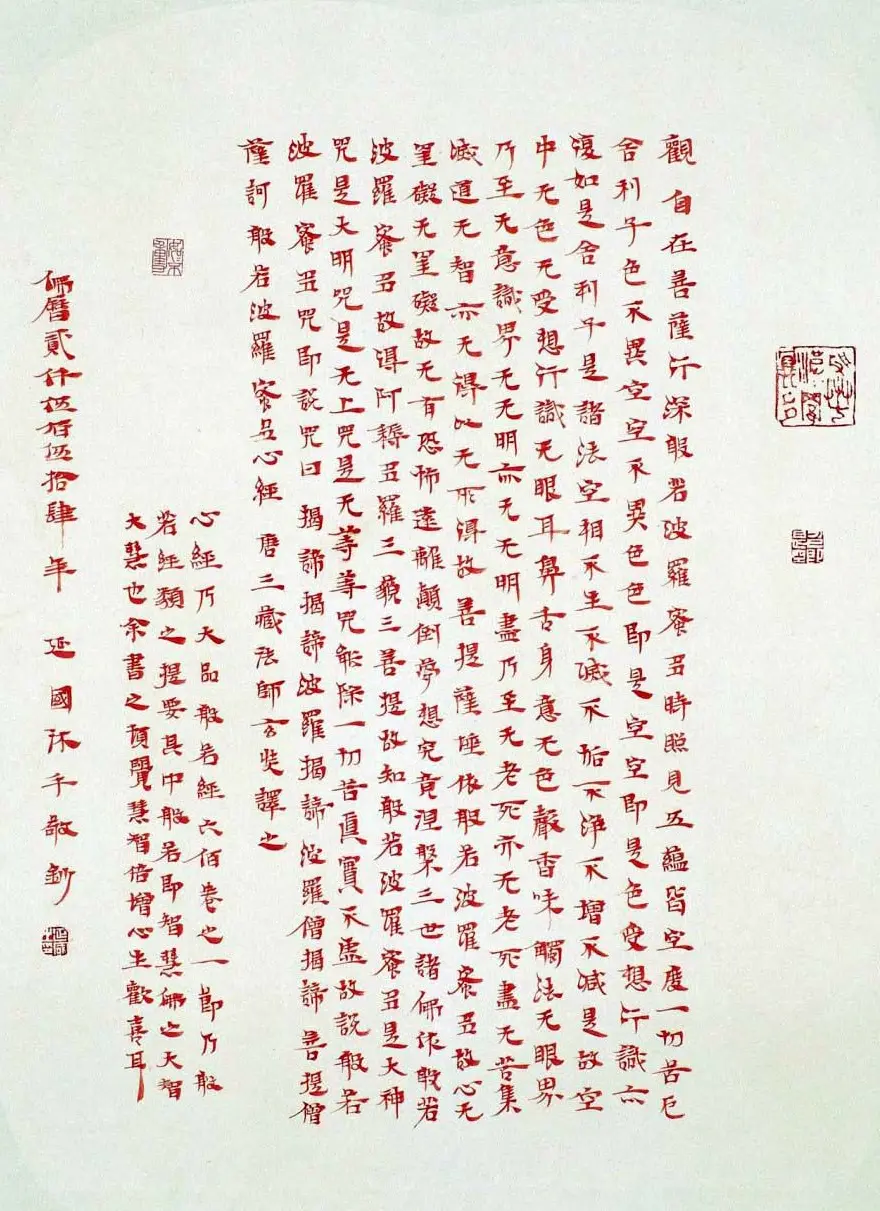 觀自在菩薩行深般若波羅蜜多時照見五蘊皆空度一切苦厄
舍利子色不異空空不異色色即是空空即是色受想行識亦
復如是舍利子是諸法空相不生不滅不垢不淨不增不減是故空
中无色无受想行識无眼耳鼻舌身意无色聲香味觸法无眼界
乃至无意識界无无明亦无无明盡乃至无老死亦无老死盡无苦集
滅道无智亦无得以无所得故菩提薩埵依般若波羅蜜多故心无
罣礙无罣礙故无有恐怖遠離顛倒夢想究竟涅槃三世諸佛依般若
波羅蜜多故得阿耨多羅三藐三菩提故知般若波羅蜜多是大神
咒是大明咒是无上咒是无等等咒能除一切苦真實不虛故說般若
波羅蜜多咒即說咒曰 揭諦揭諦波羅揭諦波羅僧揭諦菩提僧
薩訶般若波羅蜜多心經 唐三藏法師玄奘譯之
心經乃大品般若經六佰卷之一節乃般
若經類之提要其中般若即智慧佛之大智
大慧也余書之頓覺慧智倍增心生歡喜耳
佛曆貳仟伍佰伍拾肆年 延國沐手敬鈔